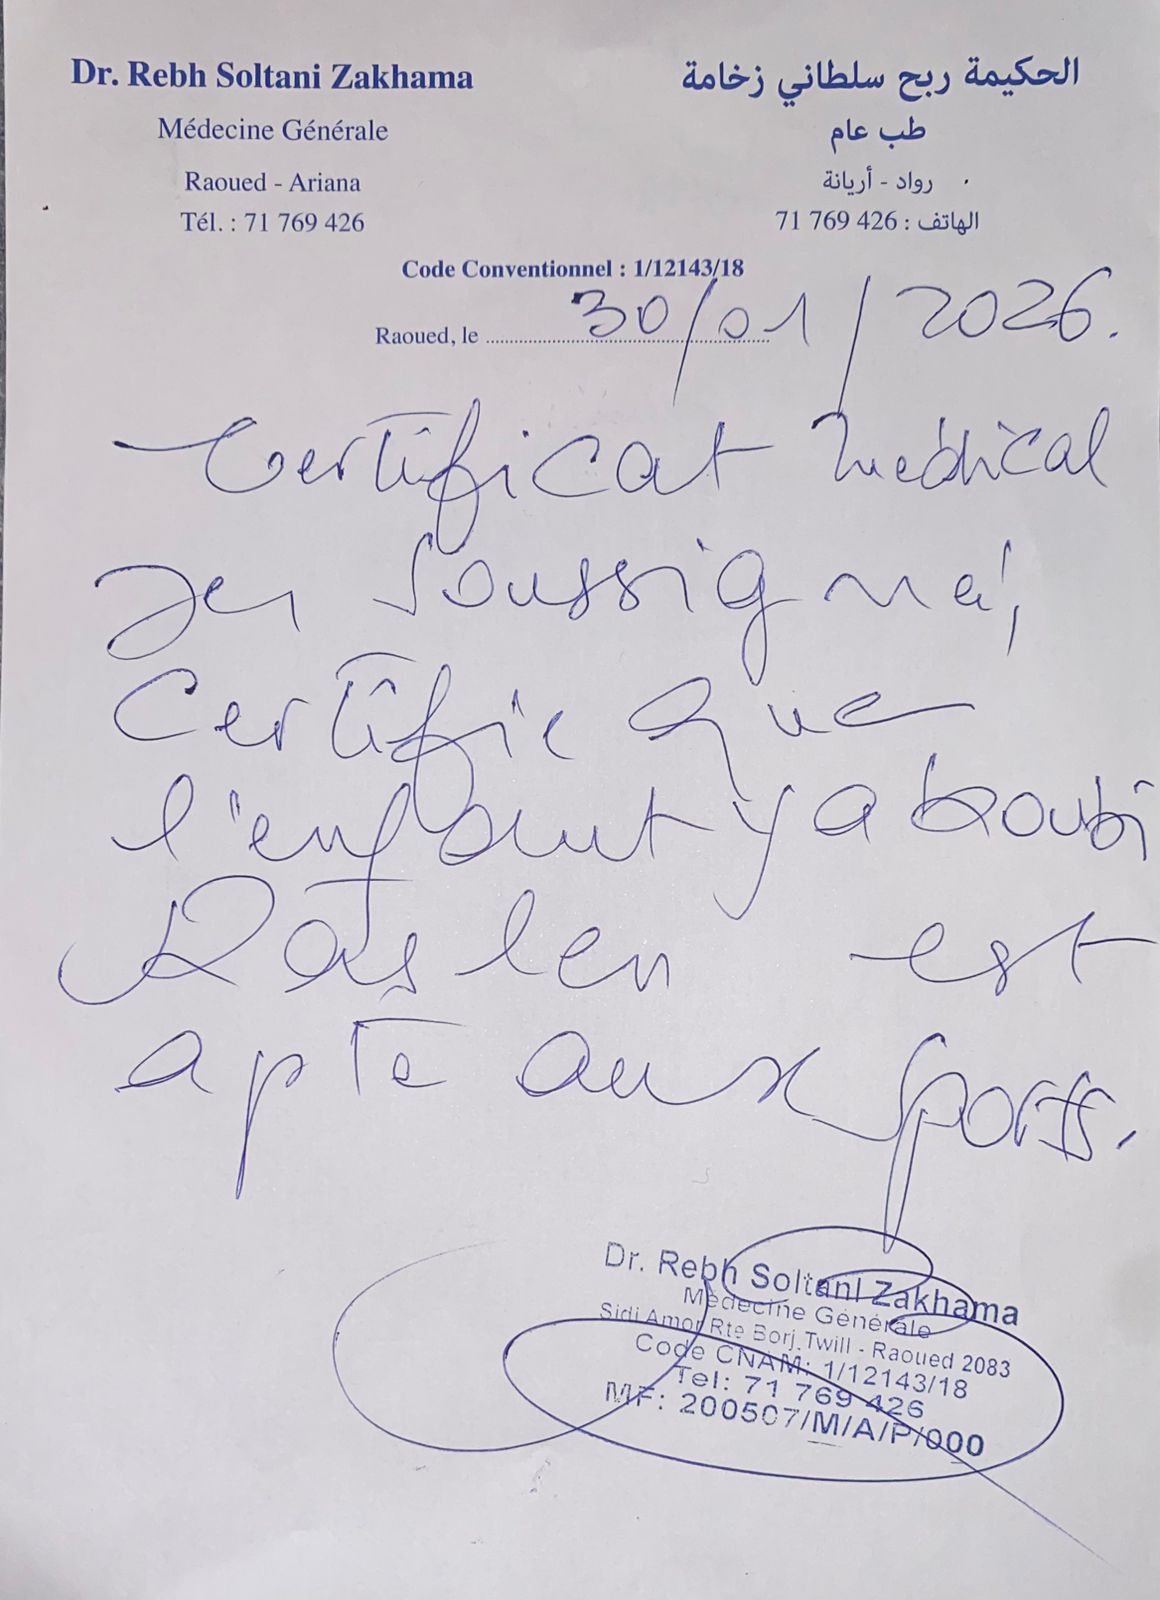 Dr. Rebh Soltani Zakhama
Médecine Générale
Raoued - Ariana
Tél. : 71 769 426
الحكيمة ربح سلطاني زخامة
طب عام
رواد - أريانة
الهاتف : 426 769 71
Code Conventionnel : 1/12143/18
Raoued, le 30/01/2026.
Certificat médical
Je, soussigné,
Certifie que
l'enfant yakoubi
Raslen est
apte aux sports.
Dr. Rebh Soltani Zakhama
Médecine Générale
Sidi Amor Rte Borj Twill - Raoued 2083
Code CNAM: 1/12143/18
Tel: 71 769 426
MF: 200507/M/A/P/000